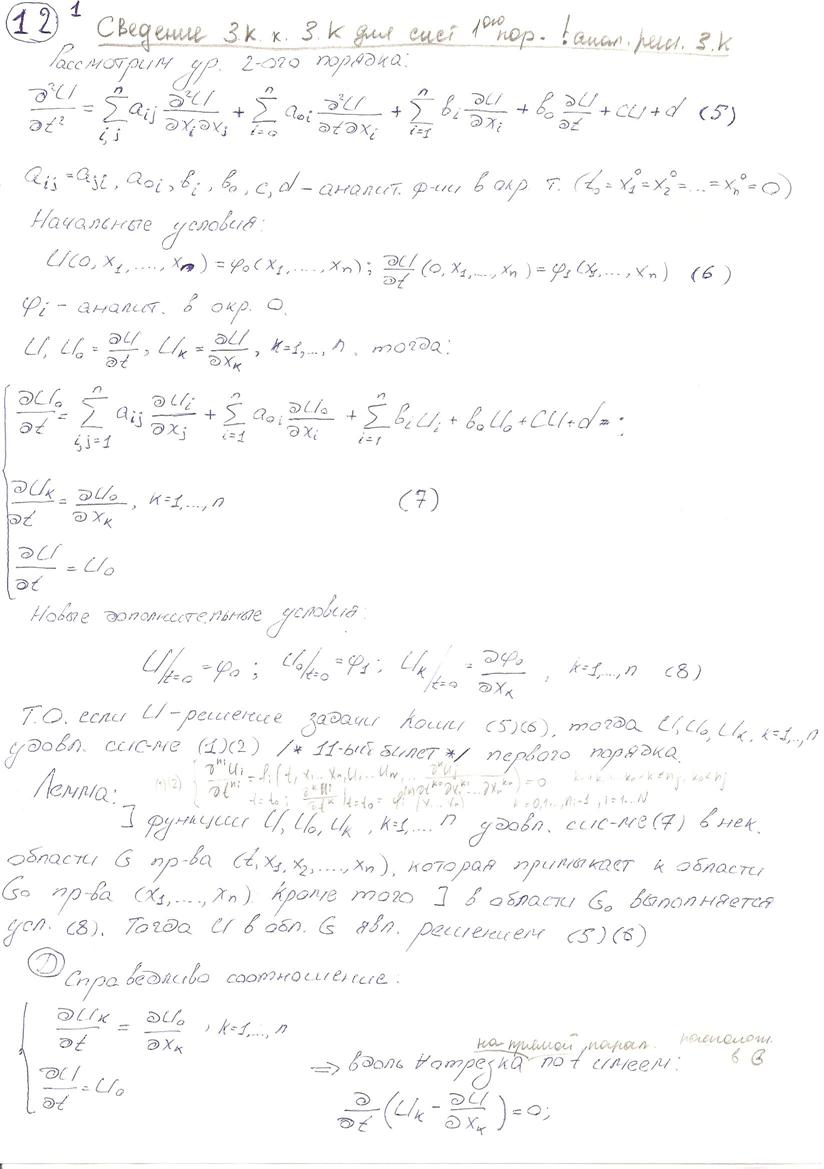 12 1 Сведение З.К. к. З.К для сист 1ого пор. ! анал. реш. З.К
Рассмотрим ур. 2-ого порядка:
∂²U/∂t² = Σⁿ_{i,j} a_ij ∂²U/∂x_i∂x_j + Σⁿ_{i=0} a_0i ∂²U/∂t∂x_i + Σⁿ_{i=1} b_i ∂U/∂x_i + b_0 ∂U/∂t + CU + d (5)
a_ij = a_ji, a_0i, b_i, b_0, c, d – аналит. ф-ии в окр т. (t_0 = x_1⁰ = x_2⁰ = ... = x_n⁰ = 0)
Начальные условия:
U(0, x_1, ...., x_n) = φ_0(x_1, ...., x_n); ∂U/∂t (0, x_1, ..., x_n) = φ_1(x_1, ..., x_n) (6)
φ_i – аналит. в окр. 0.
U, U_0 = ∂U/∂t, U_k = ∂U/∂x_k, k=1,..., n. тогда:
∂U_0/∂t = Σⁿ_{i,j=1} a_ij ∂U_i/∂x_j + Σⁿ_{i=1} a_0i ∂U_0/∂x_i + Σⁿ_{i=1} b_i U_i + b_0 U_0 + CU + d = :
∂U_k/∂t = ∂U_0/∂x_k, k=1,..., n (7)
∂U/∂t = U_0
Новые дополнительные условия:
U/_{t=0} = φ_0; U_0/_{t=0} = φ_1; U_k/_{t=0} = ∂φ_0/∂x_k, k=1,..., n (8)
Т.О. если U – решение задачи Коши (5)(6), тогда U, U_0, U_k, k=1,.., n
удовл. сис-ме (1)(2) /* 11-ый билет */ первого порядка.
Лемма:
] функции U, U_0, U_k, k=1,... n удовл. сис-ме (7) в нек.
области G пр-ва (t, x_1, x_2, ...., x_n), которая примыкает к области
G_0 пр-ва (x_1, ...., x_n). Кроме того ] в области G_0 выполняется
усл. (8). Тогда U в обл. G явл. решением (5)(6)
Д Справедливо соотношение:
∂U_k/∂t = ∂U_0/∂x_k, k=1,..., n
∂U/∂t = U_0
на прямой, парал. располож. в G
⇒ вдоль ∀ отрезка по t имеем:
∂/∂t (U_k - ∂U/∂x_k) = 0;